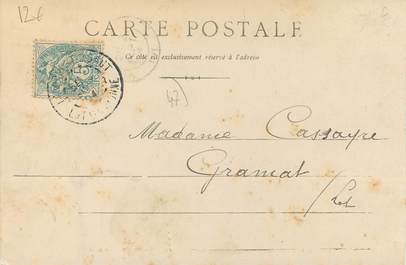 12€
CARTE POSTALE
Ce côté est exclusivement réservé à l'adresse
47
Madame Cassayre
Gramat
/Lot